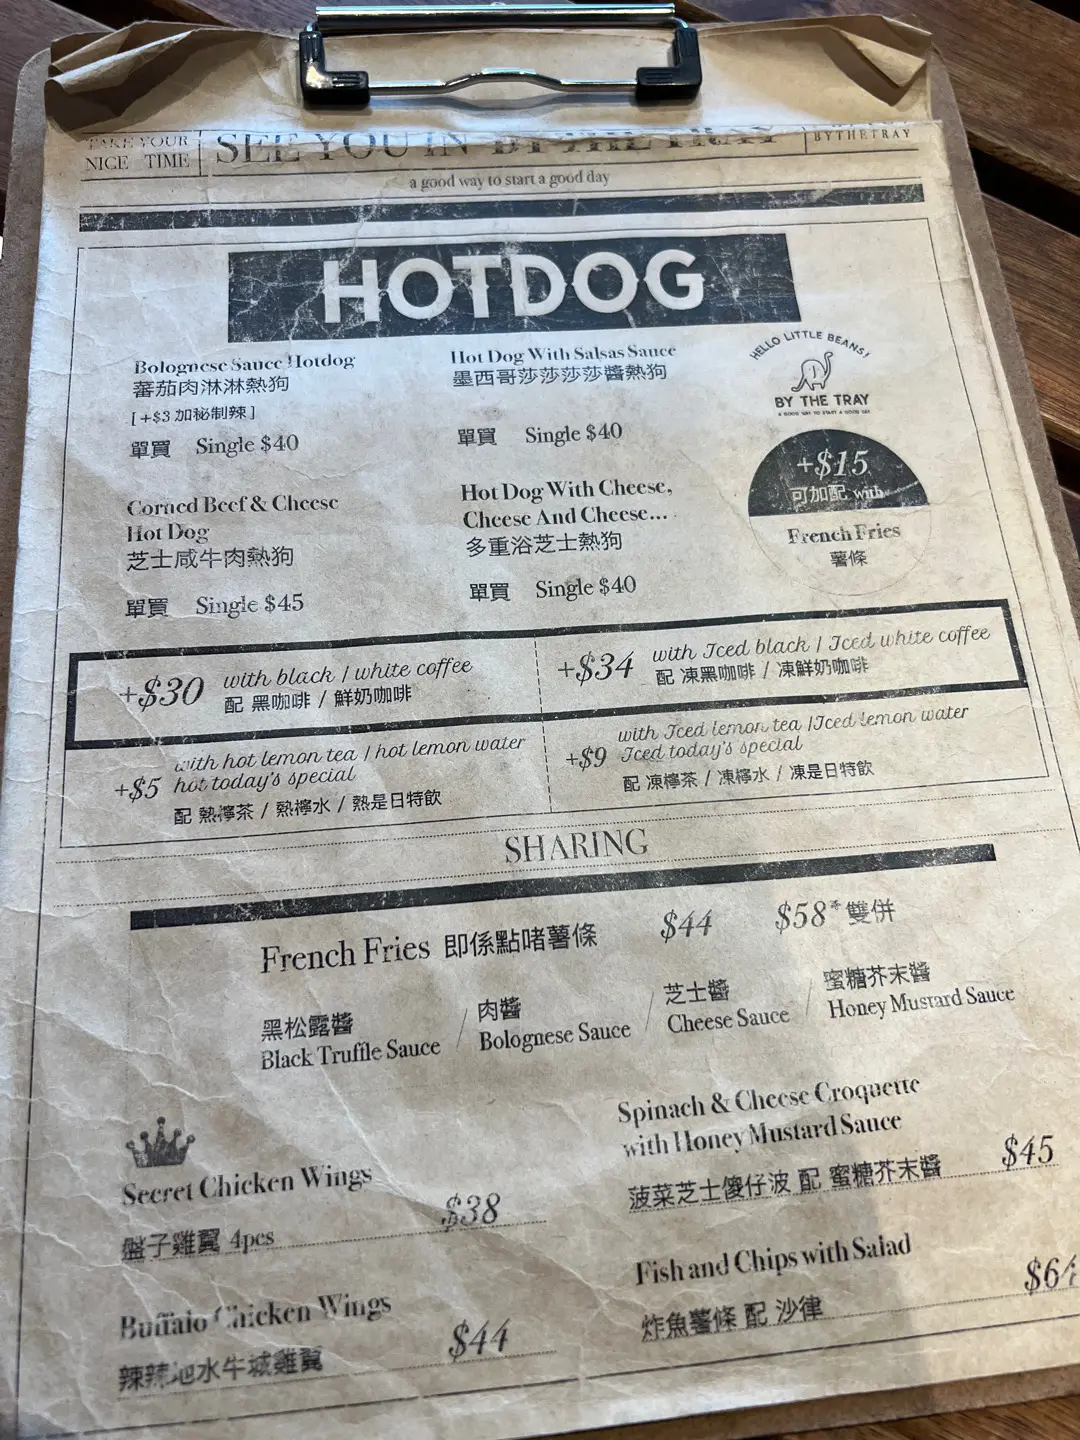 TAKE YOUR
NICE TIME
SEE YOU IN BY THE TRAY
BYTHETRAY
a good way to start a good day
HOTDOG
Bolognese Sauce Hotdog
蕃茄肉淋淋熱狗
[+$3 加秘制辣]
單買 Single $40
Hot Dog With Salsas Sauce
墨西哥莎莎莎莎醬熱狗
單買 Single $40
HELLO LITTLE BEANS!
BY THE TRAY
A GOOD WAY TO START A GOOD DAY
Corned Beef & Cheese
Hot Dog
芝士咸牛肉熱狗
單買 Single $45
Hot Dog With Cheese,
Cheese And Cheese...
多重浴芝士熱狗
單買 Single $40
+$15
可加配 with
French Fries
薯條
+$30 with black / white coffee
配 黑咖啡 / 鮮奶咖啡
+$34 with Iced black / Iced white coffee
配 凍黑咖啡 / 凍鮮奶咖啡
with hot lemon tea / hot lemon water
+$5 hot today's special
配 熱檸茶 / 熱檸水 / 熱是日特飲
with Iced lemon tea /Iced lemon water
+$9 Iced today's special
配 凍檸茶 / 凍檸水 / 凍是日特飲
SHARING
French Fries 即係點啫薯條 $44 $58*雙併
黑松露醬
Black Truffle Sauce
/
肉醬
Bolognese Sauce
/
芝士醬
Cheese Sauce
/
蜜糖芥末醬
Honey Mustard Sauce
Secret Chicken Wings
盤子雞翼 4pcs
$38
Spinach & Cheese Croquette
with Honey Mustard Sauce
菠菜芝士傻仔波 配 蜜糖芥末醬
$45
Buffalo Chicken Wings
辣辣地水牛城雞翼
$44
Fish and Chips with Salad
炸魚薯條 配 沙律